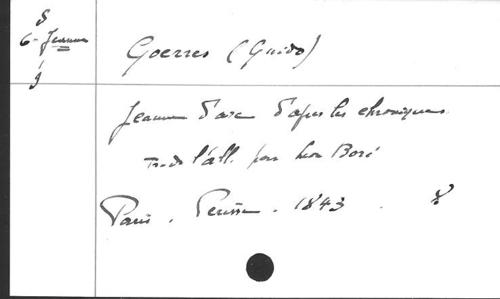 S
6 - Jeanne
g
Goerres (Guido)
Jeanne d'arc d'apres les chroniques
Tr. de l'all. par Leon Boré
Paris. Perisse. 1843. 8º